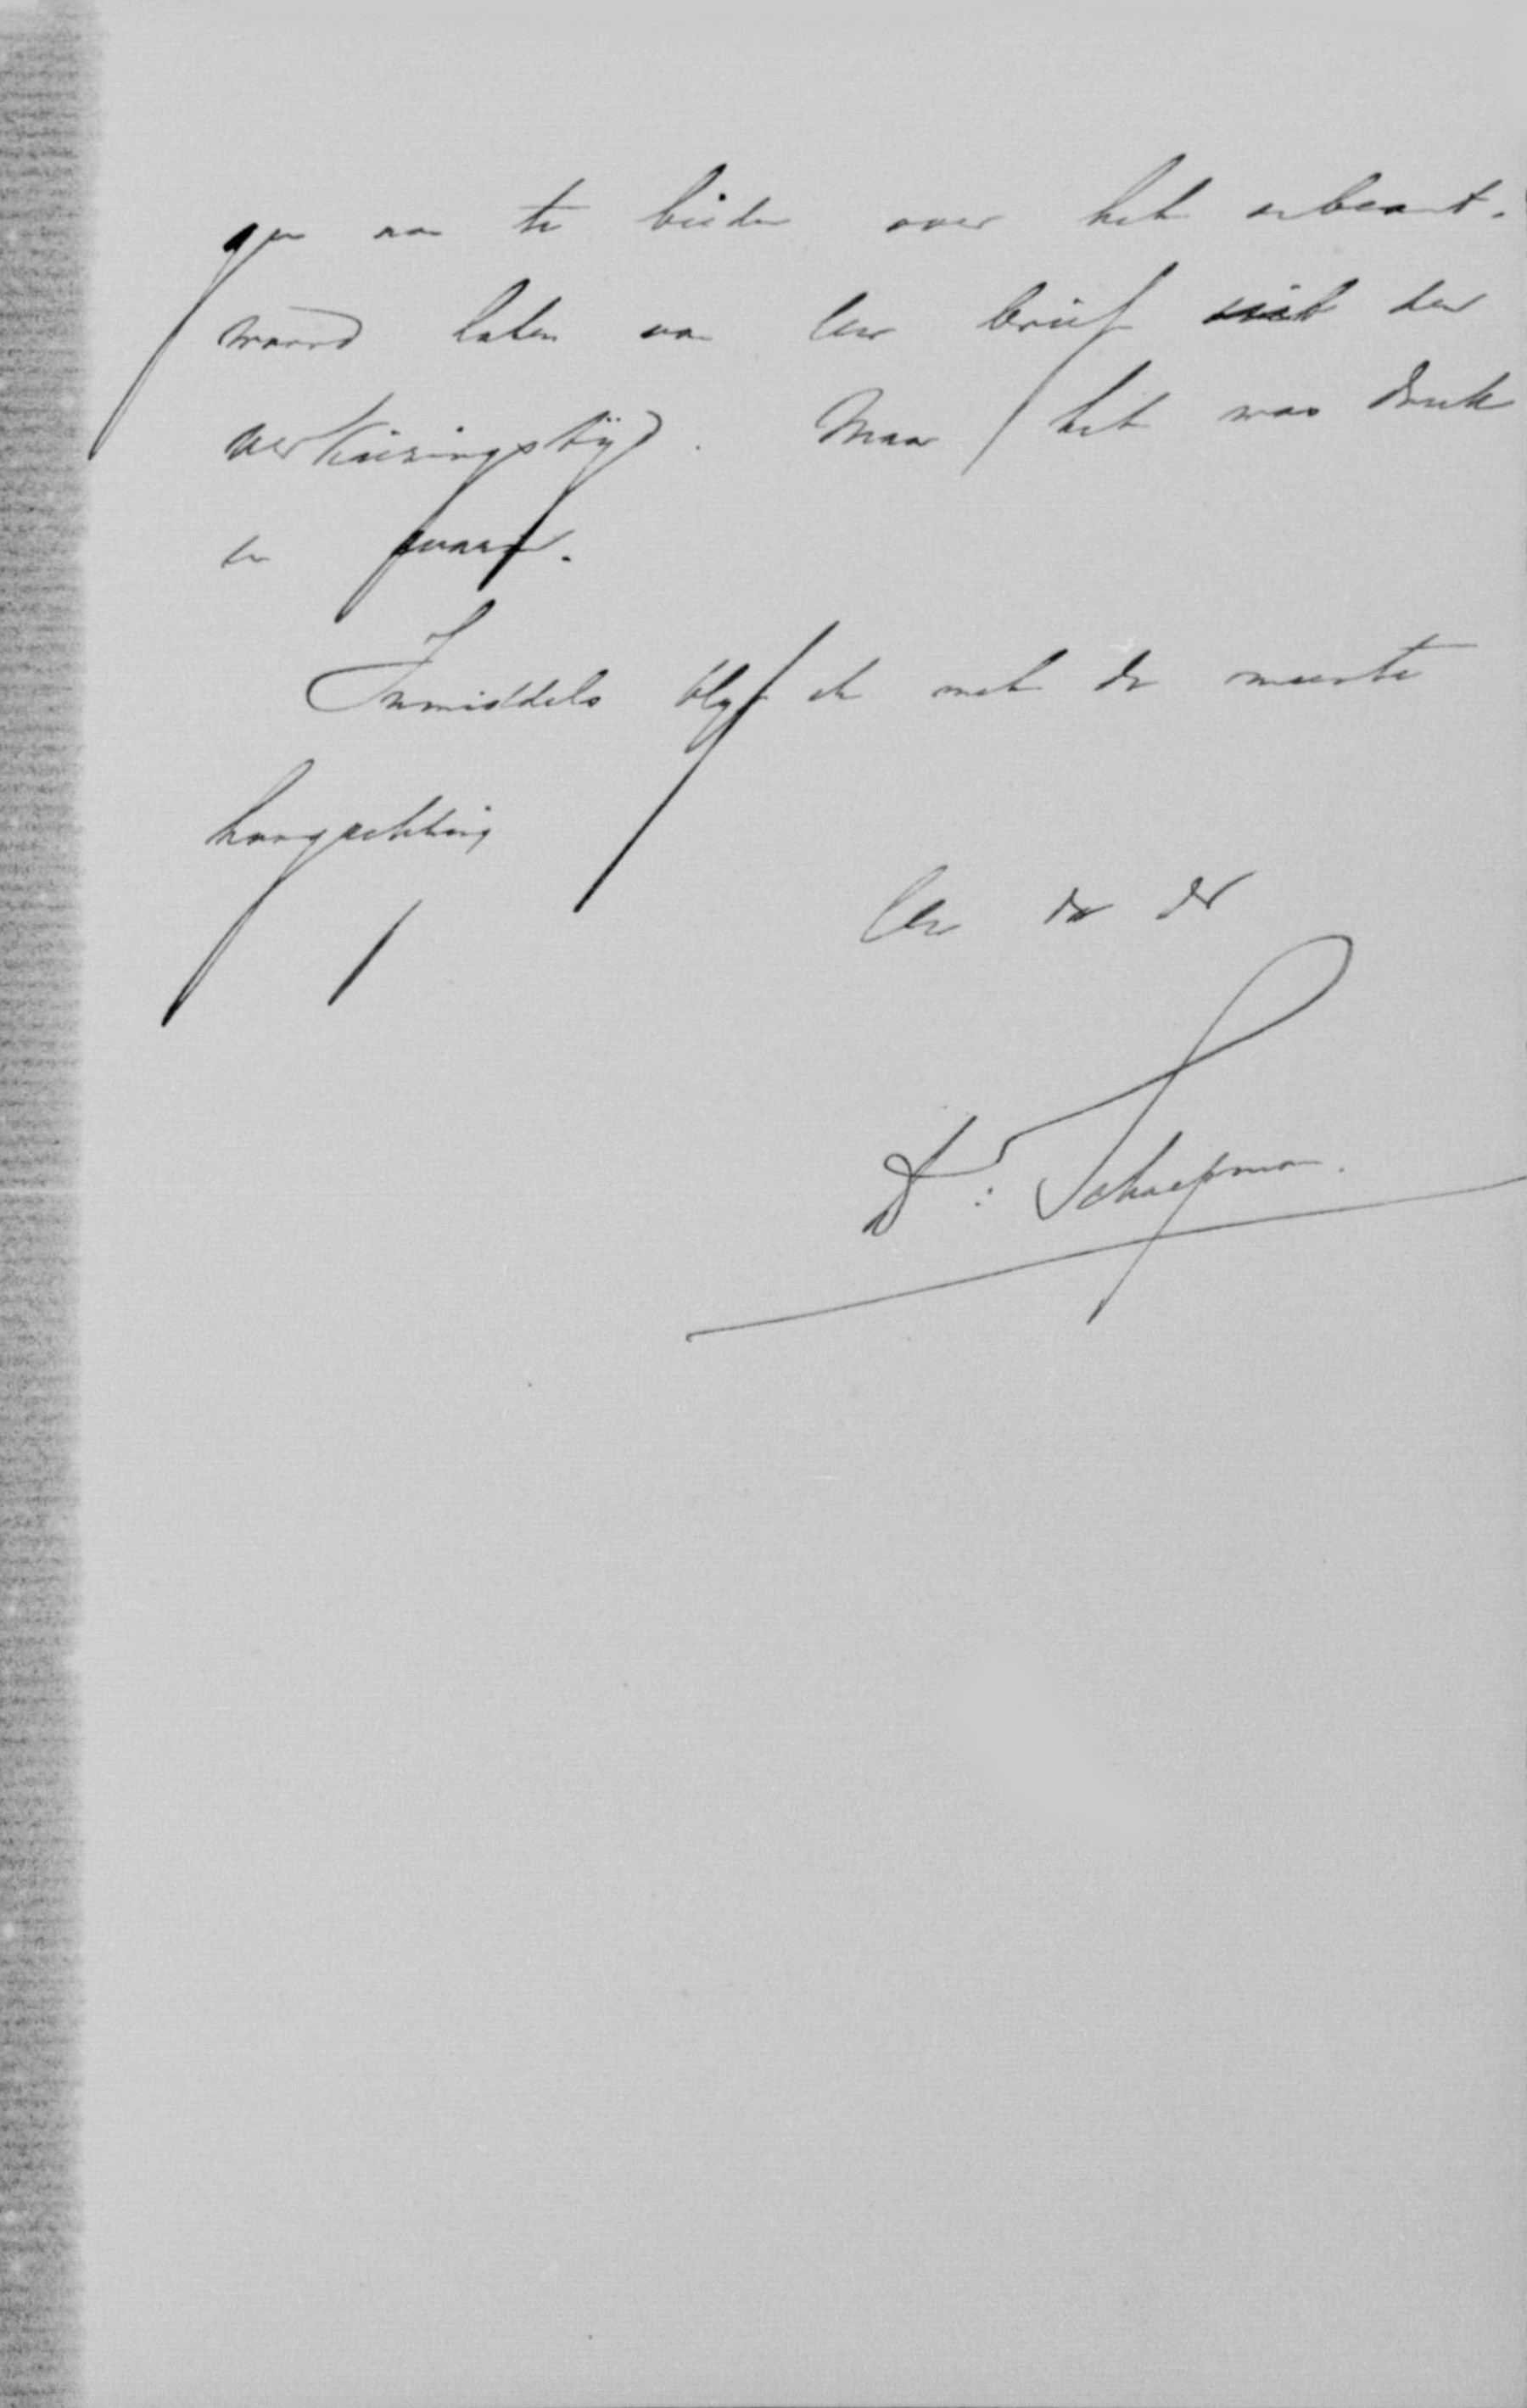 gen aan te bieden over het onbeant-
woord laten van Uw brief uit den
verkiezingstijd. Maar het was druk
en zwaar.
Inmiddels blijf ik met de meeste
hoogachting
Uw dw dr
Dr: Schaepman.